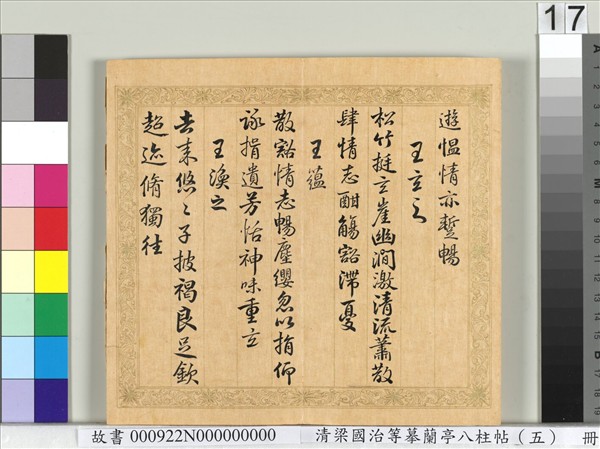 遊愠情亦蹔暢
王玄之
松竹挺玄崖幽澗激清流蕭散
肆情志酣觴豁滯憂
王蘊
散豁情志暢塵纓忽以捐仰
詠揖遺芳怡神味重玄
王渙之
去来悠々子披褐良足欽
超迹脩獨往
17
故書 000922N000000000 清梁國治等摹蘭亭八柱帖（五） 冊